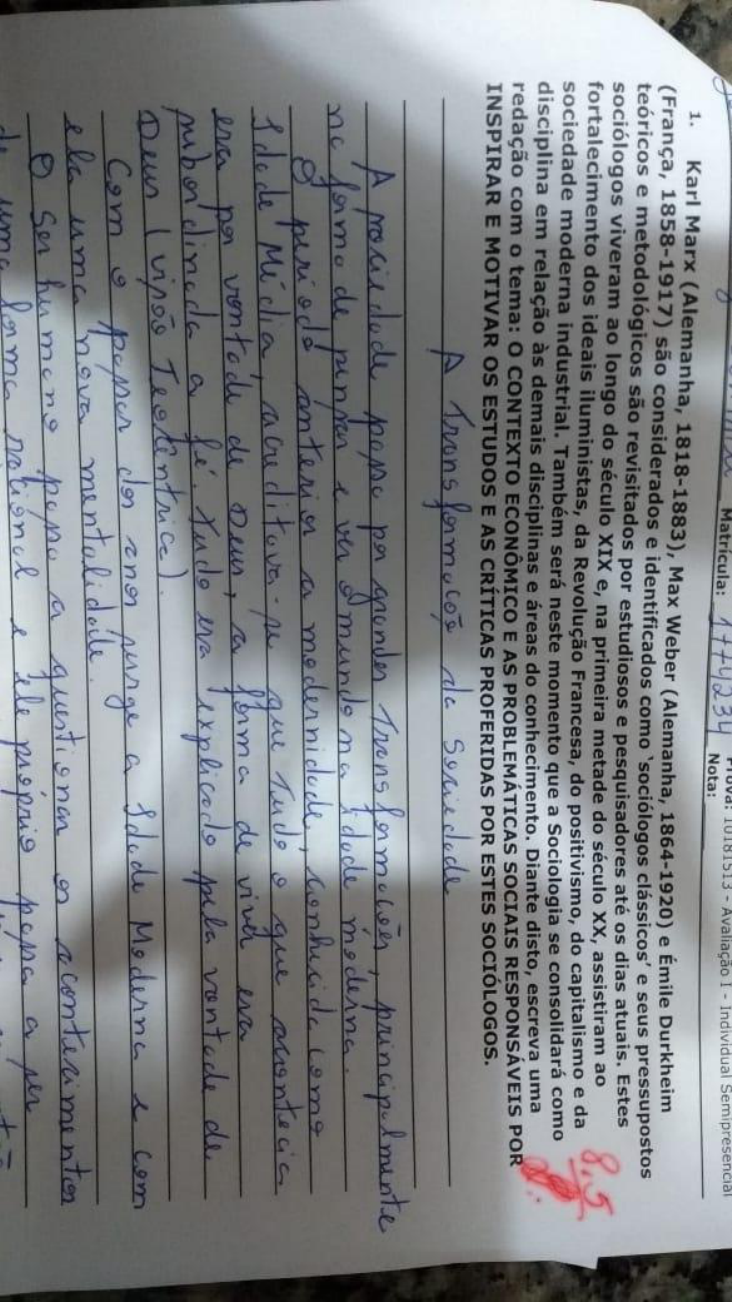 Prova: 10181513 - Avaliação I - Individual Semipresencial
Matrícula: 1774234 Nota:
1. Karl Marx (Alemanha, 1818-1883), Max Weber (Alemanha, 1864-1920) e Émile Durkheim
(França, 1858-1917) são considerados e identificados como 'sociólogos clássicos' e seus pressupostos
teóricos e metodológicos são revisitados por estudiosos e pesquisadores até os dias atuais. Estes
sociólogos viveram ao longo do século XIX e, na primeira metade do século XX, assistiram ao
fortalecimento dos ideais iluministas, da Revolução Francesa, do positivismo, do capitalismo e da
sociedade moderna industrial. Também será neste momento que a Sociologia se consolidará como
disciplina em relação às demais disciplinas e áreas do conhecimento. Diante disto, escreva uma
redação com o tema: O CONTEXTO ECONÔMICO E AS PROBLEMÁTICAS SOCIAIS RESPONSÁVEIS POR
INSPIRAR E MOTIVAR OS ESTUDOS E AS CRÍTICAS PROFERIDAS POR ESTES SOCIÓLOGOS.
8,5
A Transformação da Sociedade
A sociedade passa por grandes Transformações, principalmente
na forma de pensar e ver o mundo na idade moderna.
O período anterior a modernidade, conhecida como
Idade Média, acreditava-se que tudo o que acontecia
era por vontade de Deus, a forma de viver era
subordinada a fé. Tudo era explicado pela vontade de
Deus (visão Teocêntrica).
Com o passar dos anos surge a Idade Moderna e com
ela uma nova mentalidade.
O Ser humano passa a questionar os acontecimentos
de uma forma racional e ele próprio passa a ser